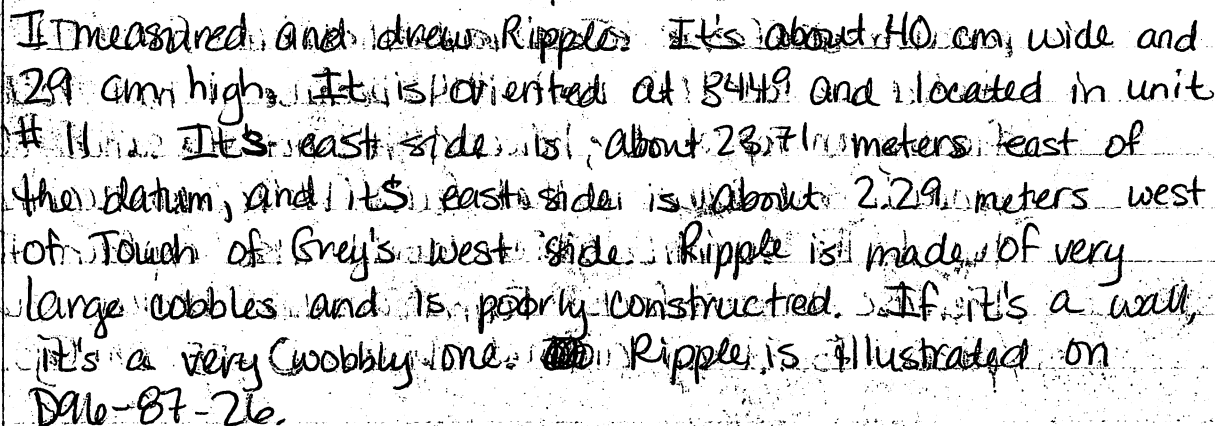 I measured and drew Ripple. It's about 40 cm wide and
29 cm high. It is oriented at 344° and located in unit
# 11. It's east side is about 23.71 meters east of
the datum, and it's east side is about 2.29 meters west
of Touch of Grey's west side. Ripple is made of very
large cobbles and is poorly constructed. If it's a wall,
it's a very wobbly one. Ripple is illustrated on
D96-87-26.